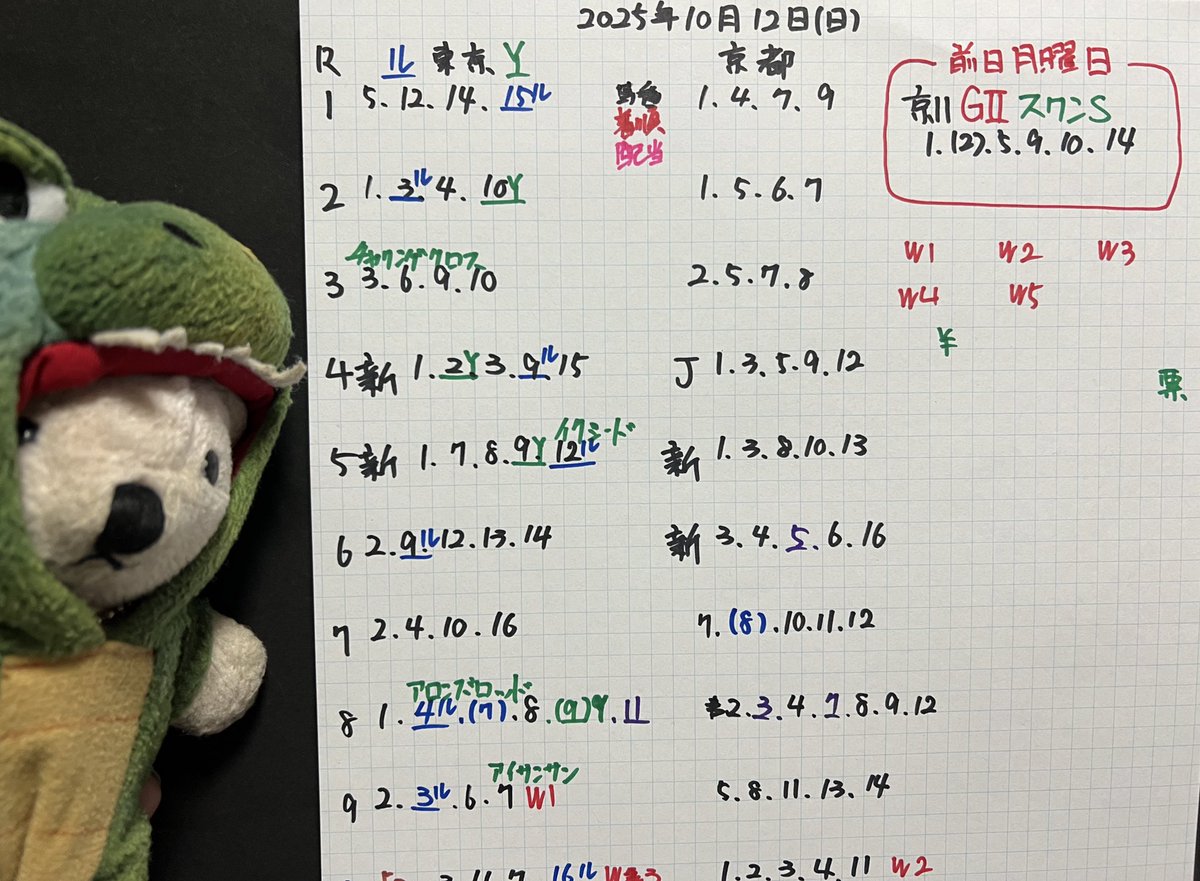 2025年10月12日(日)
R ル 東京 Y 京都
前日月曜日
1 5.12.14.15ル 馬色 1.4.7.9
着順
配当
京11 GII スワンS
1.(2).5.9.10.14
2 1.3ル.4.10Y 1.5.6.7
チャウングクロス
3 3.6.9.10 2.5.7.8
W1 W2 W3
W4 W5
¥
4新 1.2Y.3.9ル15 J 1.3.5.9.12
票
イクシード
5新 1.7.8.9Y.12ル 新 1.3.8.10.13
6 2.9ル.12.13.14 新 3.4.5.6.16
7 2.4.10.16 7.(8).10.11.12
アロンズロッド
8 1.4ル.(7).8.(9)Y.11 2.3.4.7.8.9.12
アイサンサン
9 2.3ル.6.7 W1 5.8.11.13.14
3.11.7 16ル W3 1.2.3.4.11 W2